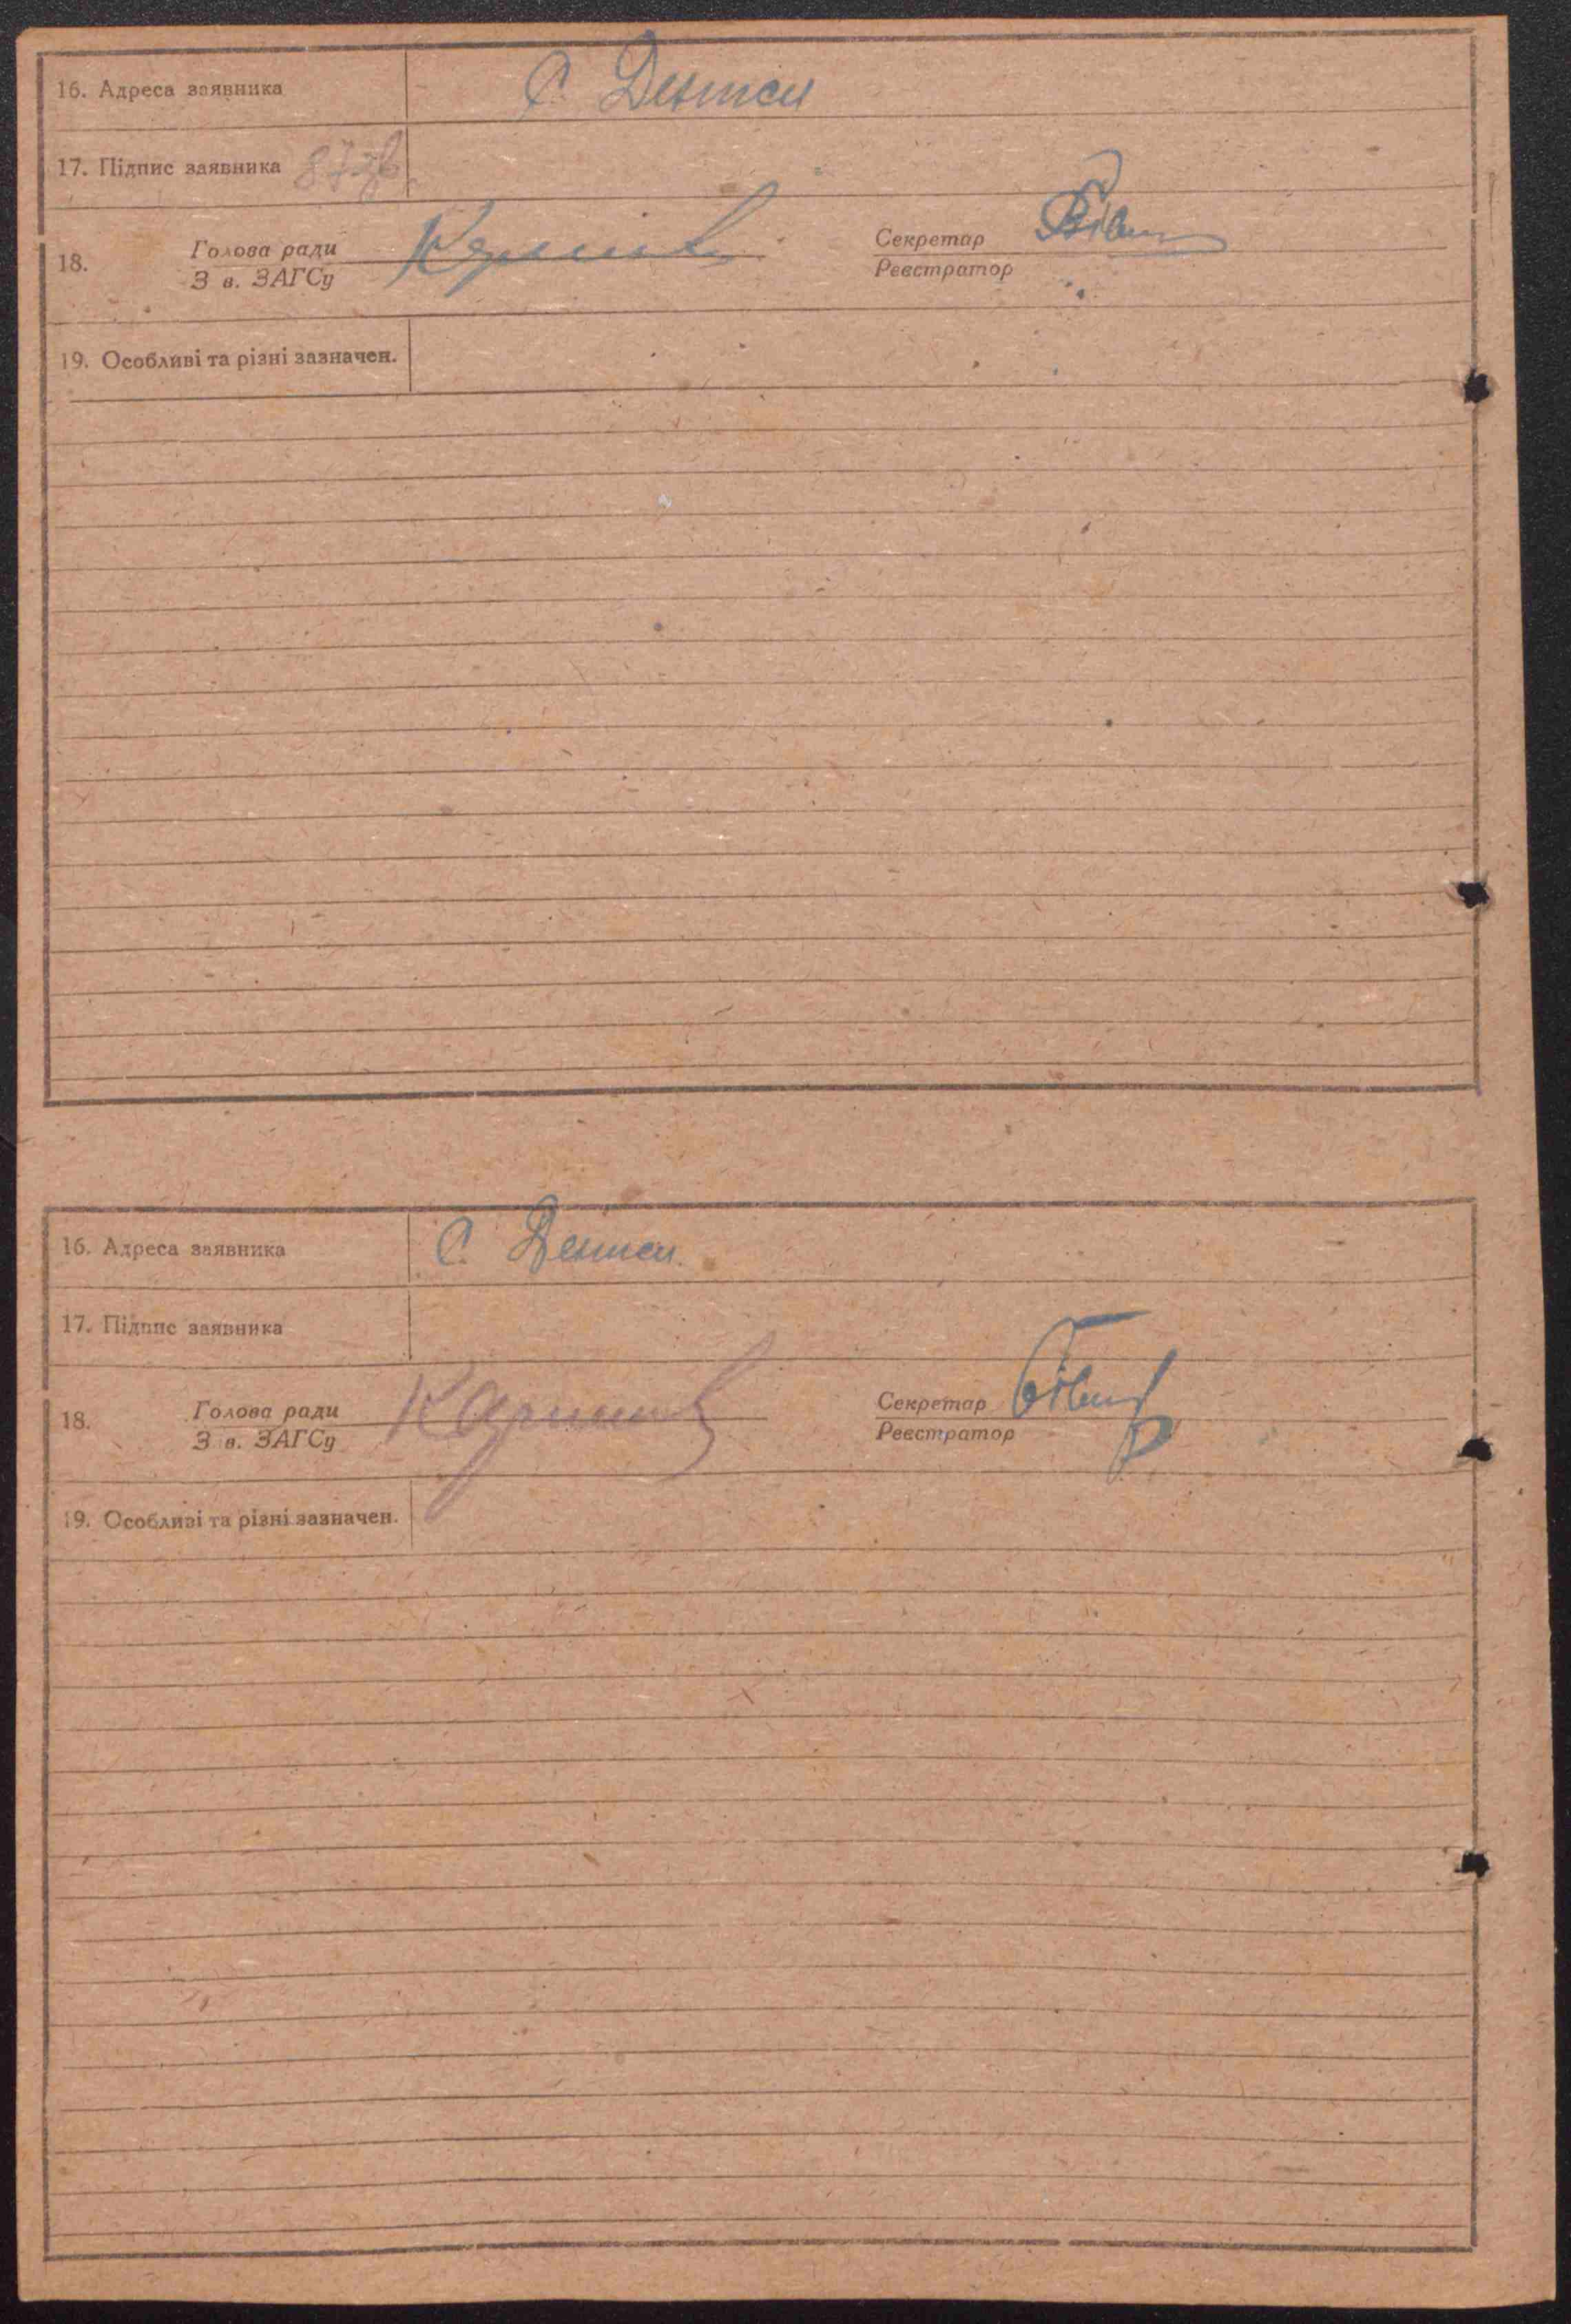 16. Адреса заявника С. Дептси
17. Підпис заявника 87 зв.
18. Голова ради Секретар
З в. ЗАГСу Реєстратор
19. Особливі та різні зазначен.
16. Адреса заявника С.
17. Підпис заявника
18. Голова ради Секретар
З в. ЗАГСу Реєстратор
19. Особливі та різні зазначен.